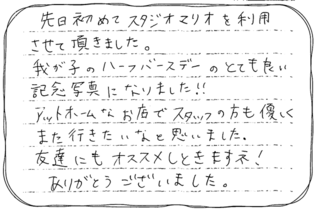 先日初めてスタジオマリオを利用
させて頂きました。
我が子のハーフバースデーのとても良い
記念写真になりました!!
アットホームなお店でスタッフの方も優しく
また行きたいなと思いました。
友達にもオススメしときますネ!
ありがとうございました。